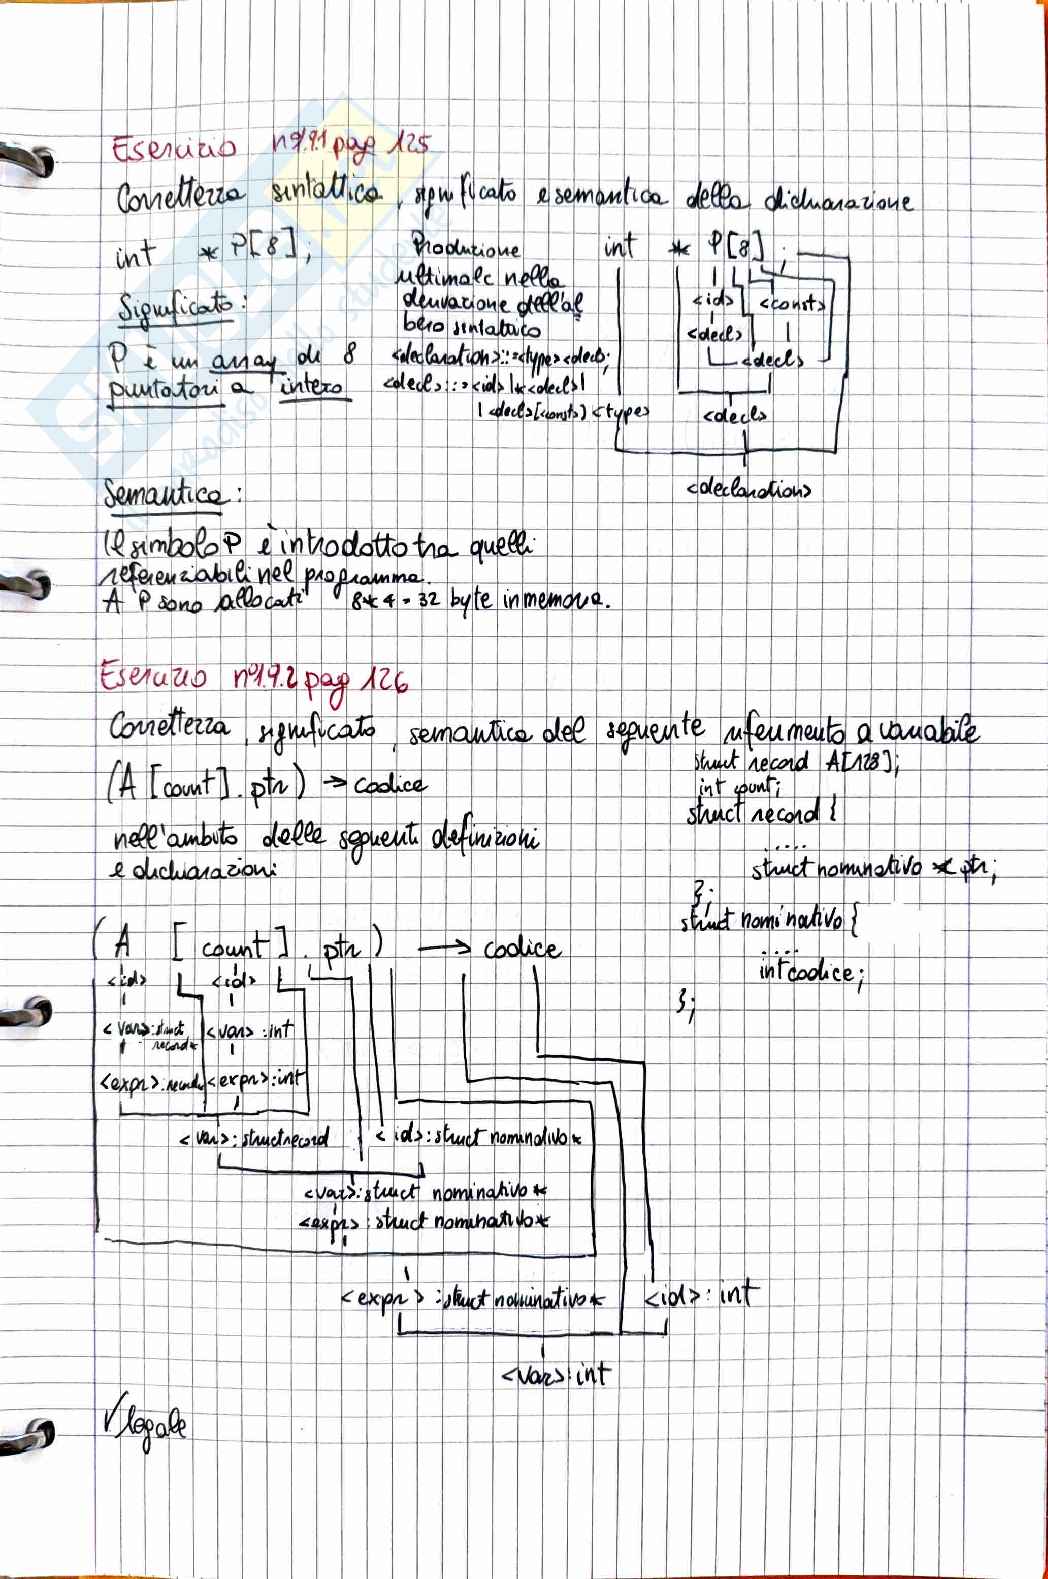 Esercizio n°1.9.1 pag 125
Correttezza sintattica, significato e semantica della dichiarazione
int * P[8];
Significato:
P è un array di 8
puntatori a intero
Produzione
nella
derivazione dell'al
bero sintattico
<declaration>::=<type><decl>;
<decl>::=<id>|*<decl>|
|<decl>[<const>]
int * P[8] ;
<id> <const>
<decl>
<decl>
<type>
<decl>
<declaration>
Semantica:
Il simbolo P è introdotto tra quelli
referenziabili nel programma.
A P sono allocati 8*4=32 byte in memoria.
Esercizio n°1.9.2 pag 126
Correttezza, significato, semantica del seguente riferimento a variabile
(A [count]. ptr) → codice
nell'ambito delle seguenti definizioni
e dichiarazioni
struct record A[128];
int count;
struct record {
.....
struct nominativo * ptr;
};
struct nominativo {
.....
int codice;
};
(A [ count ] . ptr ) → codice
<id> <id>
<var>: struct record* <var>:int
<expr>: record* <expr>:int
<var>: struct record <id>: struct nominativo*
<var>: struct nominativo*
<expr>: struct nominativo*
<expr>: struct nominativo* <id>: int
<var>: int
√ legale